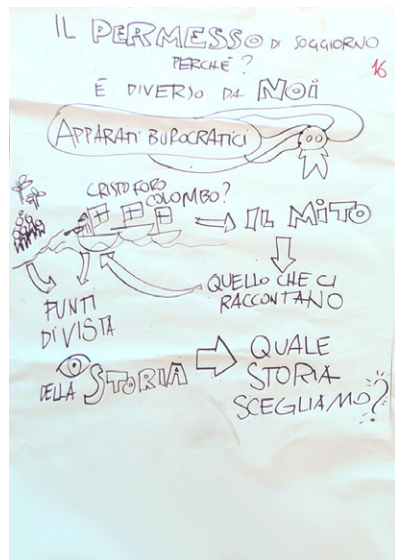 IL PERMESSO DI SOGGIORNO
PERCHÉ?
16
É DIVERSO DA NOI
APPARATI BUROCRATICI
CRISTOFORO
COLOMBO?
IL MITO
QUELLO CHE CI
RACCONTANO
PUNTI
DI VISTA
DELLA STORIA
QUALE
STORIA
SCEGLIAMO?